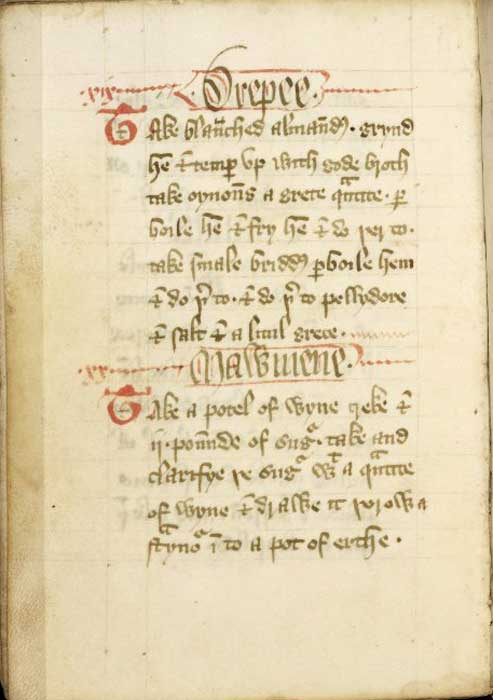 .xix. Drepee.
Take blaūched almand̄. grynd
hē & temꝑ vp with gode broth
take oynoūs a grete qᵃtite. ꝑ
boile hē & fry hē & do þer to.
take smale bridd̄ ꝑboile hem
& do þ̄ to. & do þ̄ to pellydore
& salt & a litul grece.
.xx. Mawmene.
Take a potel of wyne greke &
ij. poūnde of sugʳ. take and
clarifye þe sugʳ wᵗ a qᵃtite
of wyne & drawe it þorow a
stynoʳ ī to a pot of erthe.